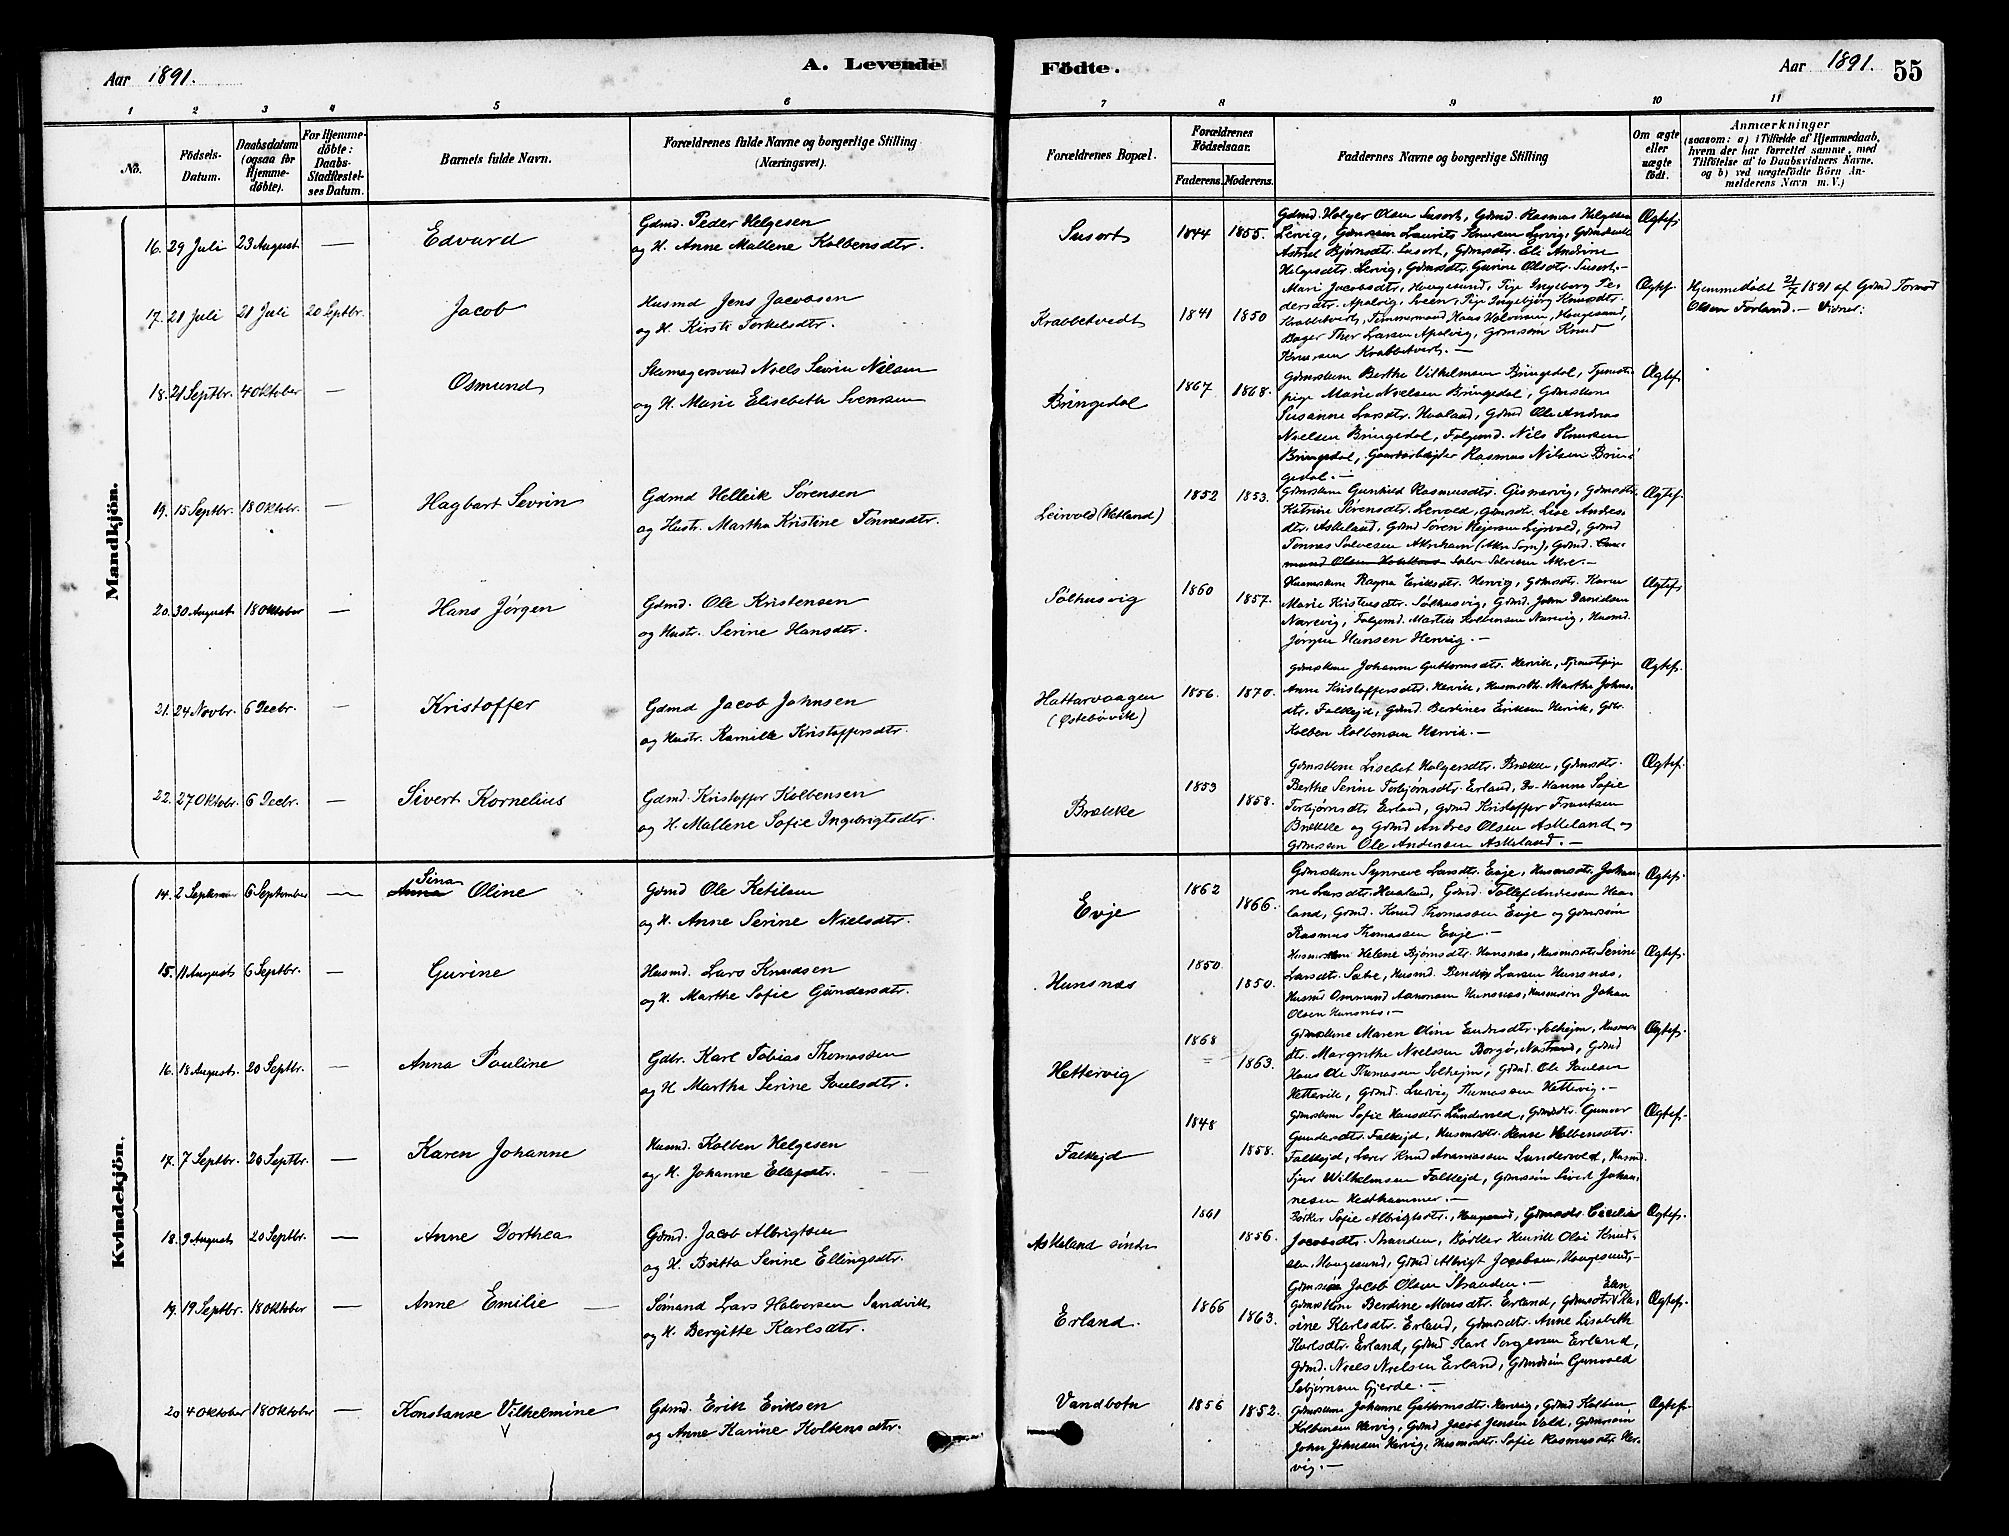 Aar 1891.
A. Levende Födte.
Aar 1891.
55
1 2 3 4 5 6 7 8 9 10 11
No.
Födsels-Datum.
Daabsdatum (ogsaa for Hjemmedöbte).
For Hjemmedöbte: Daabs-Stadfæstelses Datum.
Barnets fulde Navn.
Forældrenes fulde Navne og borgerlige Stilling (Næringsvei).
Forældrenes Bopæl.
Forældrenes Födselsaar.
Faderens. Moderens.
Faddernes Navne og borgerlige Stilling
Om ægte eller uægte födt.
Anmærkninger
(saasom: a) i Tilfælde af Hjemmedaab,
hvem der har forrettet samme, med
Tilföielse af to Daabsvidners Navne,
og b) ved uægtefödte Börn An-
melderens Navn m. V.)
Mandkjön.
16. 29 Juli 23 August — Edvard
Gdmd. Peder Helgesen
og H. Anne Mallene Kolbensdtr.
Susort 1844 1855.
Gdmd. Holger Olsen Susort, Gdmd. Rasmus Helgesen
Lervig, Gdmssøn Laurits Knutsen Lervig, Gdmdskone
Astrid Bjørnsdtr. Susort, Gdmdsdtr. Eli Andrine
Helgesdtr. Lervig, Gdmdsdtr. Gurine Olsdtr. Susort.—
Ægtef.
17. 21 Juli 21 Juli 20 Septbr. Jacob
Husmd Jens Jacobsen
og H. Kirsti Torkelsdtr.
Krabbetvedt 1841 1850
Mari Jacobsdtr, Haugesund, Pige Ingeborg Pe-
dersdtr. Apalvig, Sveen, Pige Ingebjørg Knutsdtr.
Krabbetvert, Tømmermand Hans Halvorsen, Haugesund,
Bager Thor Larsen Apalvig, Gdmssøn Knud
Knutsen Krabbetvert.—
Ægtef.
Hjemmedøbt 21/7 1891 af Gdmd Tormod
Olsen Førland.— Vidner:
18. 21 Septbr. 4 Oktober — Osmund
Skomagersvend Niels Sevrin Nilsen
og H. Marie Elisabeth Svensen
Bringedal 1867 1868.
Gdmdskone Berthe Vilhelmsen Bringedal, Tjeneste-
pige Marie Noelsen Bringedal, Gdmdskone
Susanne Larsdtr. Haaland, Gdmd Ole Andreas
Noelsen Bringedal, Folgemd. Nils Knutsen
Bringedal, Gaardarbejder Rasmus Nilsen Brin-
gedal.—
Ægtef.
19. 15 Septbr. 18 Oktobr. — Hagbart Sevrin
Gdmd Helleik Sørensen
og Hustr. Martha Kristine Tønnesdtr.
Leirvold (Hetland) 1852 1853.
Gdmdskone Gunhild Rasmusdtr. Gismarvig, Gdmdsdtr.
Katrine Sørensdtr. Lervold, Gdmsdtr. Lise Andres-
dtr. Askeland, Gdmd Søren Leirvold, Gdmd
Tønnes Salvesen Akrehavn (Akre Sogn), Gdmd.
Salve Salvesen Akre.—
Ægtef.
20. 30 August 18 Oktober — Hans Jørgen
Gdmd. Ole Kristensen
og Hustr. Serine Hansdtr.
Sølhusvig 1860 1857.
Husmskone Ragna Eriksdtr. Hervig, Gdmsdtr. Karen
Marie Kristensdtr. Sølhusvig, Gdmd. John Danielsen
Narevig, Folgemd. Martin Kolbensen Narevig, Husmd.
Jørgen Hansen Hervig.—
Ægtef.
21. 24 Novbr. 6 Decbr. — Kristoffer
Gdmd Jacob Johnsen
og Hustr. Kamille Kristoffersdtr.
Hattarvaagen
(Østebøvik) 1856. 1870.
Gdmdskone Johanne Guttormsdtr. Hervik, Tjenestepige
Anne Kristoffersdtr. Hervik, Husmsdtr. Martha Johns-
dtr. Falkejd, Gdmd. Berdines Eriksen Hervik, Gdbr.
Kolben Kolbensen Hervik.—
Ægtef.
22. 27 Oktobr. 6 Decbr. — Sivert Kornelius
Gdmd. Kristoffer Kolbensen
og H. Mallene Sofie Ingebrigtsdtr.
Brække 1853 1858.
Gdmdskone Lisebet Holgersdtr. Brække, Gdmsdtr.
Berthe Serine Torbjørnsdtr. Erland, Do. Hanne Sofie
Torbjørnsdtr Erland, Gdmd Kristoffer Frantsen
Brække og Gdmd Andres Olsen Askeland og
Gdmssøn Ole Andersen Askeland.—
Ægtef.
Kvindekjön.
14. 2 September 6 September — Sina Oline
Gdmd Ole Ketilsen
og H. Anne Serine Nielsdtr.
Evje 1862 1866.
Gdmdskone Synneve Larsdtr. Evje, Husmsdtr. Johan-
ne Larsdtr. Haaland, Gdmd. Tollef Andressen Haa-
land, Gdmd. Knud Thomassen Evje og Gdmdssøn
Rasmus Thomassen Evje.—
Ægtef.
15. 11 August 6 Septbr. — Gurine
Husmd. Lars Knudsen
og H. Marthe Sofie Gundersdtr.
Hunsnæs 1850. 1850.
Husmskone Helene Bjørnsdtr. Hunsnæs, Husmsdtr Serine
Larsdtr. Sæbø, Husmd. Bendix Larsen Hunsnæs,
Husmd Ommund Aanonsen Hunsnæs, Husmssøn Johan
Olsen Hunsnæs.—
Ægtef.
16. 18 August. 20 Septbr. — Anna Pauline
Gdbr. Karl Tobias Thomassen
og H. Martha Serine Poulsdtr.
Hettervig 1868 1863.
Gdmdskone Maren Oline Endresdtr. Solheim, Husms-
dtr. Margrethe Nielsen Borgø, Nøstrand, Gdmd
Hans Ole Thomassen Solheim, Gdmd. Ole Paulsen
Hettervik, Gdmd. Ludvig Thomassen Hettervig.—
Ægtef.
17. 7 Septbr. 20 Septbr. — Karen Johanne
Husmd. Kolben Helgesen
og H. Johanne Ellefsdtr.
Falkejd 1848 1858.
Gdmdskone Sofie Hansdtr. Lundevold, Gdmdsdtr. Gunvor
Gundersdtr. Falkejd, Husmsdtr. Kolbensdtr.
Falkejd, Lærer Knud Ananiassen Lundevold, Husmd.
Sjur Wilhelmsen Falkejd, Gdmssøn Sivert Johan-
nesen Hesthammer.—
Ægtef.
18. 9 August 20 Septbr. — Anne Dorthea
Gdmd. Jacob Albrigtsen
og H. Britta Serine Ellingsdtr.
Askeland indre 1861 1856.
Sofie Albrigtsdtr., Haugesund, Gdmsdtr. Cecelie
Jacobsdtr. Stranden, Bødker Henrik Olai Knud-
sen, Haugesund, Gdmd Albrigt Jacobsen, Haugesund,
Gdmssøn Jacob Olsen Stranden.—
Ægtef.
19. 19 Septbr. 18 Oktober — Anne Emilie —
Sømand Lars Halvorsen Sandvik
og H. Bergitte Karlsdtr.
Erland. 1866 1863.
Gdmdskone Berdine Monsdtr. Erland, Gdmsdtr Ka-
rine Karlsdtr. Erland, Gdmsdtr. Anne Lisabeth
Karlsdtr. Erland, Gdmd Karl Torgersen Erland,
Gdmd. Niels Nielsen Erland, Gdmdssøn Gunvald
Sebjørnsen Gjerde.—
Ægtef.
20 4 Oktober 18 Oktober — Konstanse Vilhelmine
Gdmd. Erik Eriksen
og Anne Karine Holtensdtr.
Vandbotn 1856 1852.
Gdmdskone Johanne Guttormsdtr. Hervig, Gdmd Kolben
Kolbensen Hervig, Gdmd Jacob Jensen Vold, Gdmssøn
John Johnsen Hervig, Husmsdtr. Sofie Rasmusdtr. Her-
vig.—
Ægtef.